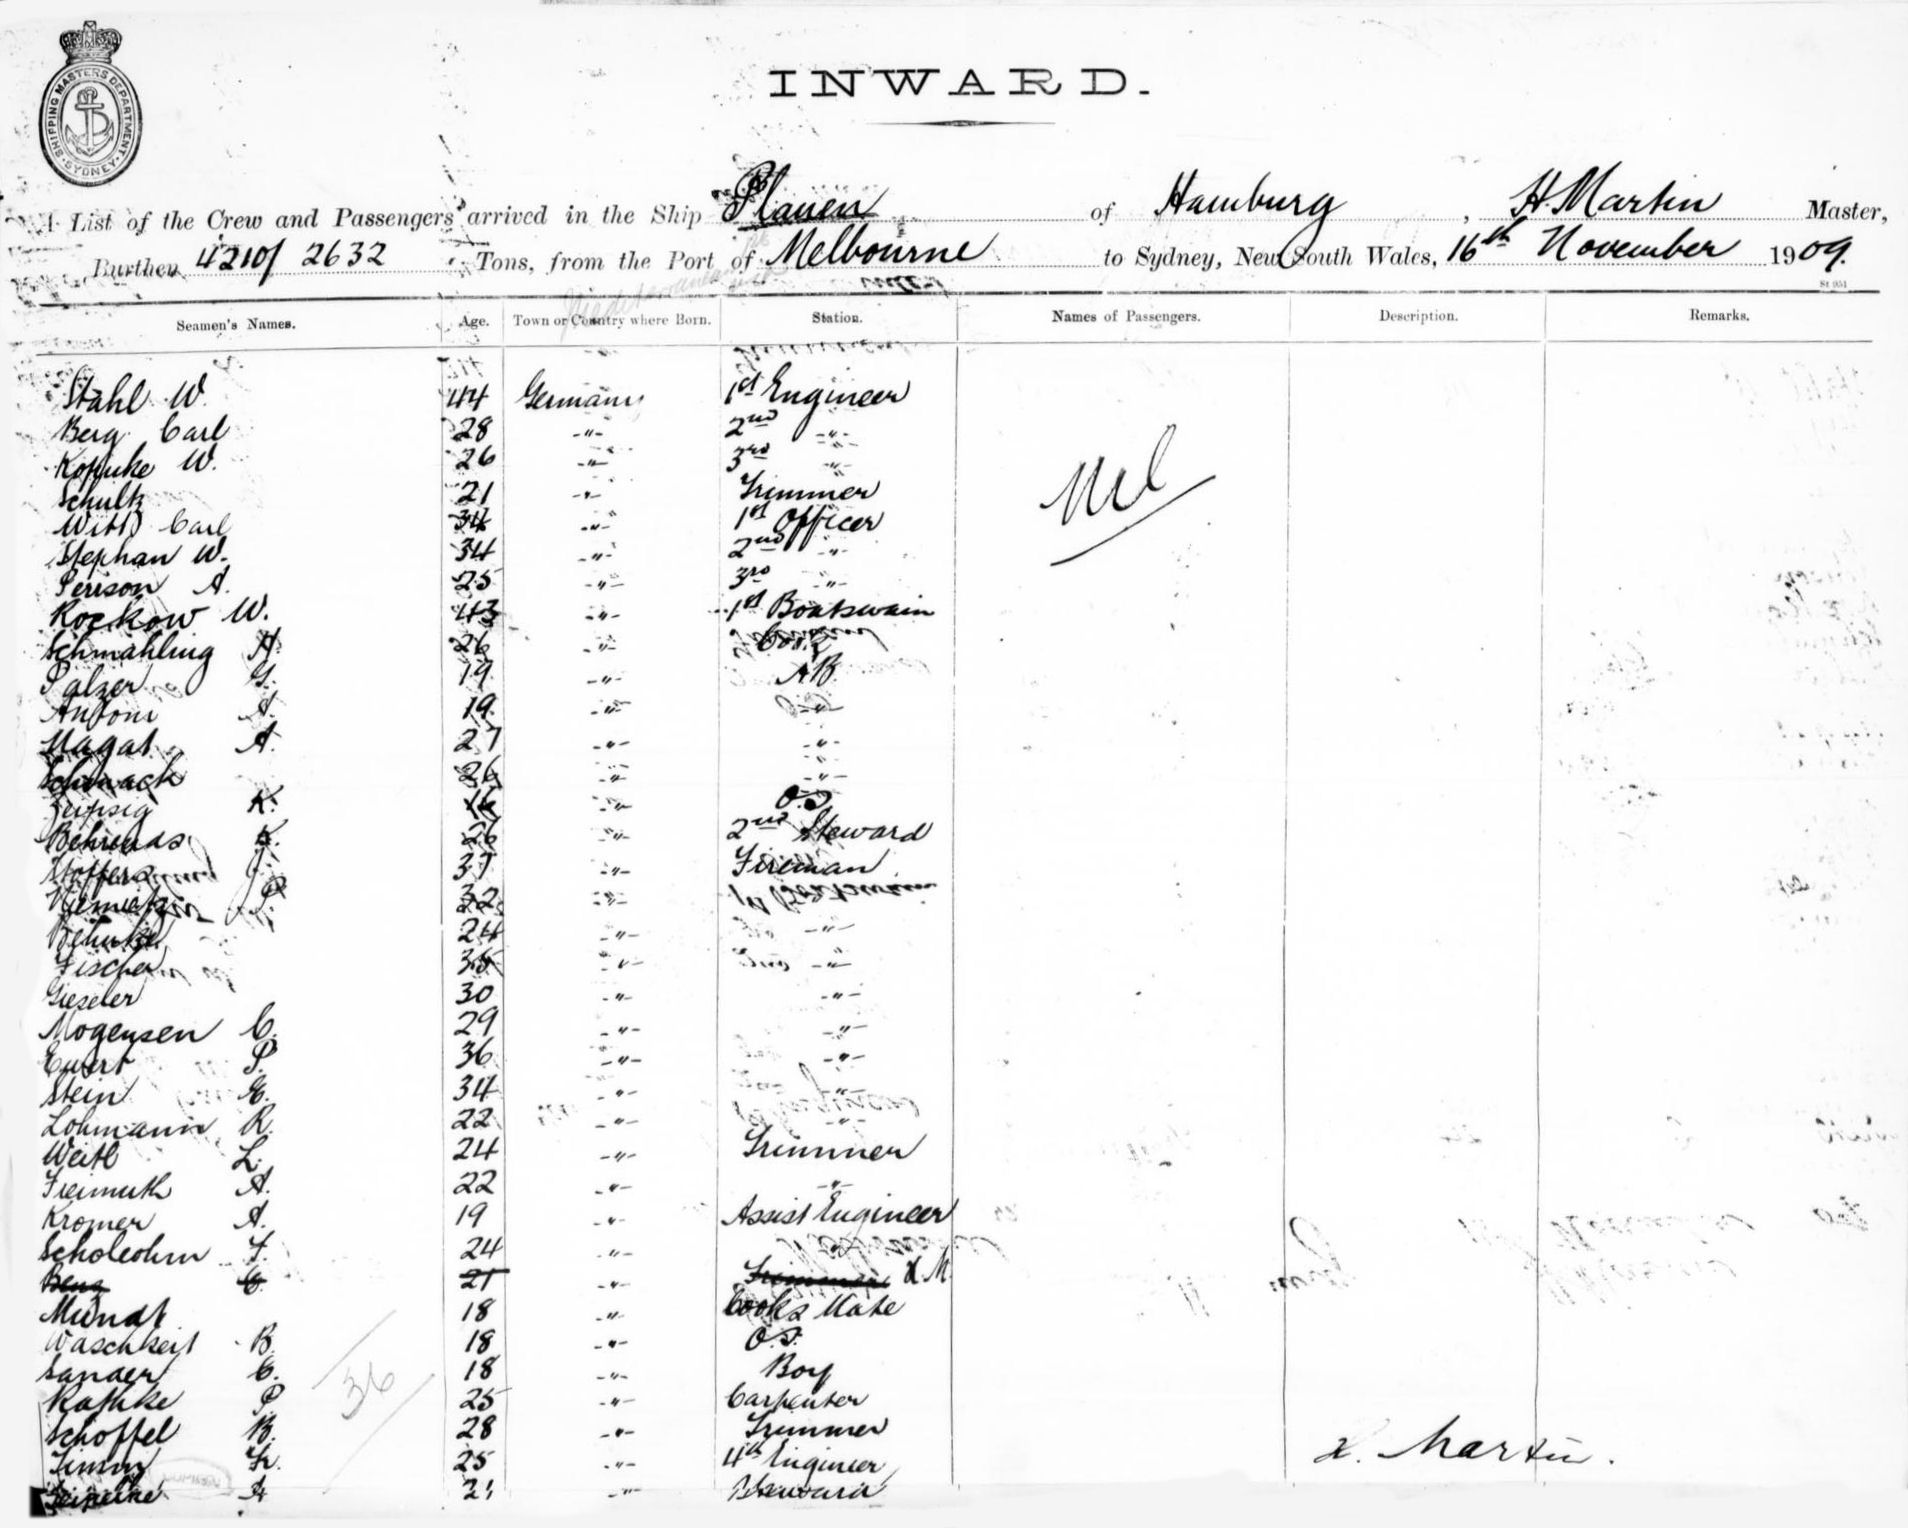 SHIPPING MASTERS DEPARTMENT · SYDNEY ·
INWARD.
A List of the Crew and Passengers arrived in the Ship Plauen of Hamburg, H Martin Master,
Burthen 4210/ 2632 Tons, from the Port of Melbourne to Sydney, New South Wales, 16th November 1909.
St 951
Seamen's Names. Age. Town or Country where Born. Station. Names of Passengers. Description. Remarks.
Stahl W. 44 Germany 1st Engineer
Berg Carl 28 -"- 2nd -"-
Kopnke W. 26 -"- 3rd -"-
Schultz 21 -"- Trimmer
Nil
Witt Carl 34 -"- 1st Officer
Stephan W. 34 -"- 2nd -"-
A. 25 -"- 3rd -"-
Rockow W. 43 -"- 1st Boatswain
Schmahling A. 26 -"- Cook
Palzer G. 19 -"- AB
Antoni A. 19 -"-
Magat A. 27 -"- -"-
Schwack 26 -"- -"-
Leipsig K. 16 -"- O.S
Behrends K. 26 -"- 2nd Steward
Stoffers J. 37 -"- Fireman
P. 32 -"-
24 -"- -"-
Fischer 35 -"- -"-
Gieseler 30 -"- -"-
Mogensen C. 29 -"- -"-
Ewert P. 36 -"- -"-
Stein E. 34 -"- -"-
Lohmann R. 22 -"- -"-
Weitl L. 24 -"- Trimmer
Freimuth A. 22 -"- -"-
Kromer A. 19 -"- Assist Engineer
F. 24 -"-
Benz C. 21 -"- Trimmer H M.
Mundt 18 -"- Cooks Mate
Waschkeit B. 18 -"- O.S.
Sander C. 18 -"- Boy
36
Rathke P. 25 -"- Carpenter
Schoffel B. 28 -"- Trimmer
H. Martin.
Timm Fr. 25 -"- 4th Engineer
21 -"- Steward